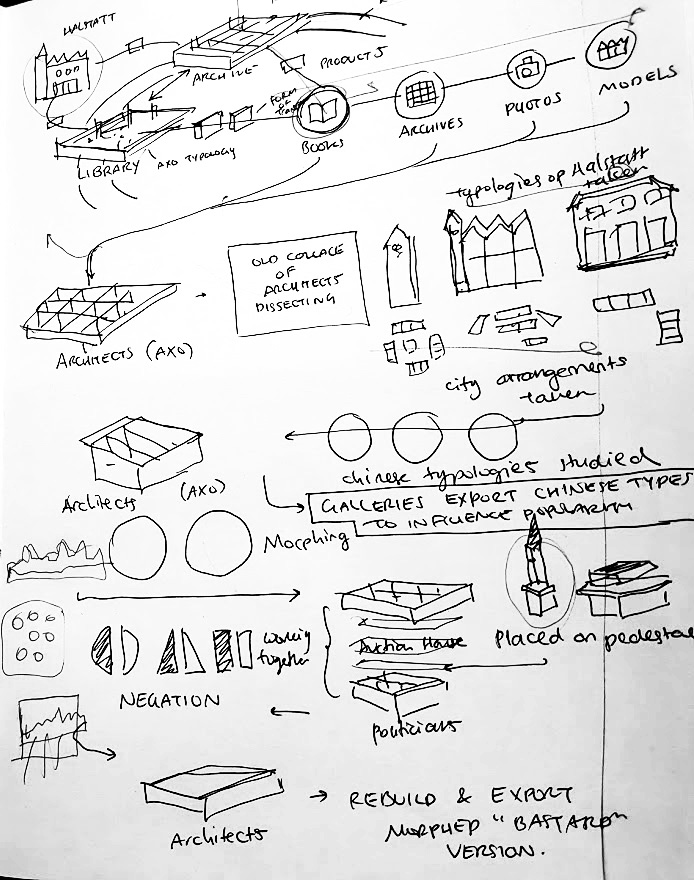 HALSTATT
ARCHIVE
PRODUCTS
FORM OF
LIBRARY
AXO TYPOLOGY
BOOKS
ARCHIVES
PHOTOS
MODELS
typologies of Halstatt
taken
OLD COLLAGE
OF
ARCHITECTS
DISSECTING
ARCHITECTS (AXO)
city arrangements
taken
chinese typologies studied
Architects (AXO)
GALLERIES EXPORT CHINESE TYPES
TO INFLUENCE POPULARITY
Morphing
working
together
Auction House
Placed on pedestal
NEGATION
politicians
Architects
REBUILD & EXPORT
MORPHED "BASTARD"
VERSION.